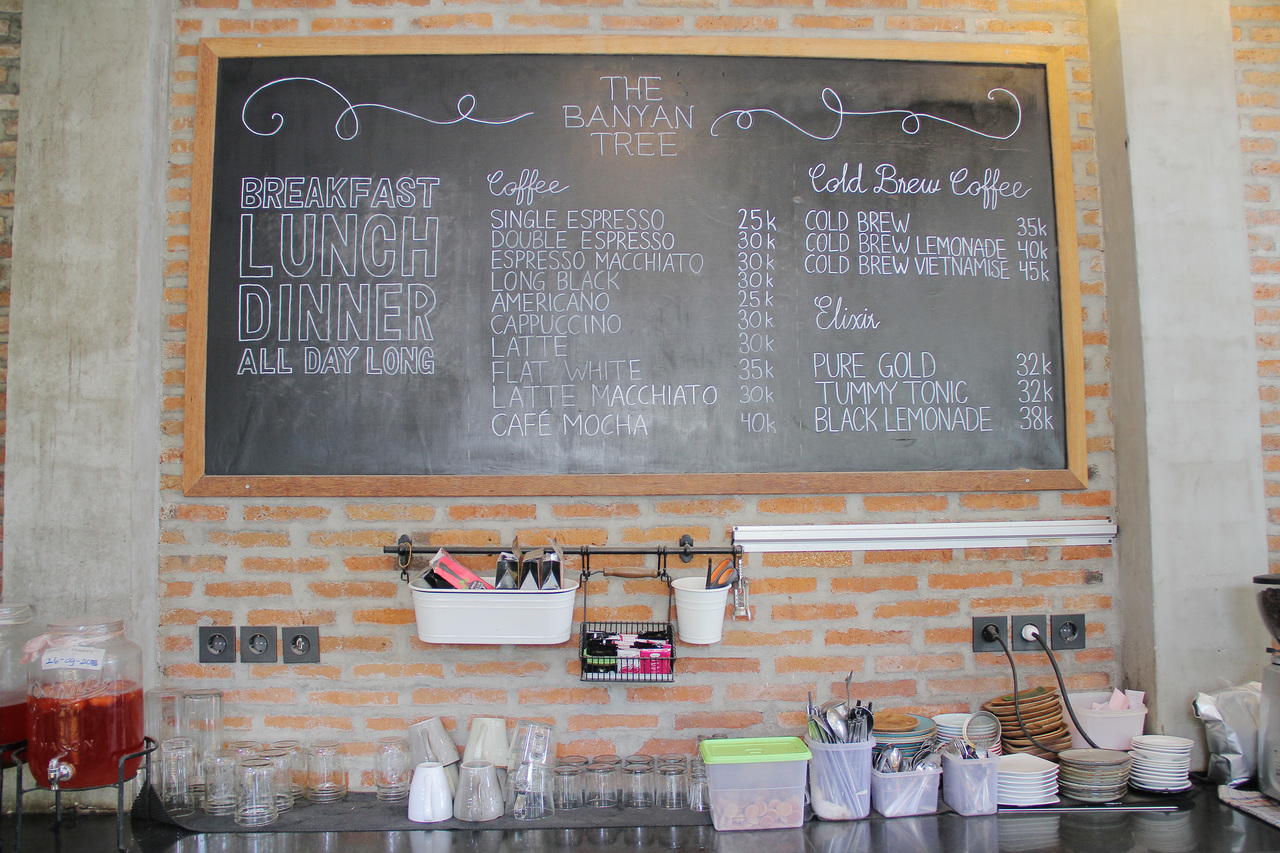 THE
BANYAN
TREE
BREAKFAST
LUNCH
DINNER
ALL DAY LONG
Coffee
SINGLE ESPRESSO 25k
DOUBLE ESPRESSO 30k
ESPRESSO MACCHIATO 30k
LONG BLACK 30k
AMERICANO 25k
CAPPUCCINO 30k
LATTE 30k
FLAT WHITE 35k
LATTE MACCHIATO 30k
CAFÉ MOCHA 40k
Cold Brew Coffee
COLD BREW 35k
COLD BREW LEMONADE 40k
COLD BREW VIETNAMISE 45k
Elixir
PURE GOLD 32k
TUMMY TONIC 32k
BLACK LEMONADE 38k